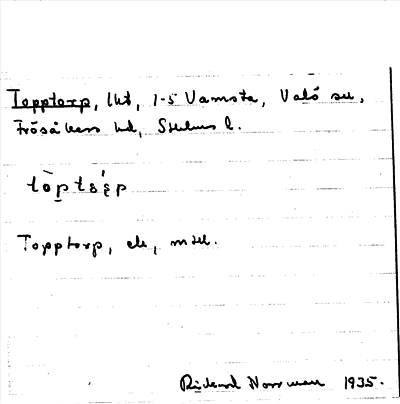 Topptorp, lht, 1-5 Vamsta, Valö sn,
Frösåkers hd, Sthlms l.
Topptorp,
Rickard Norrman 1935.